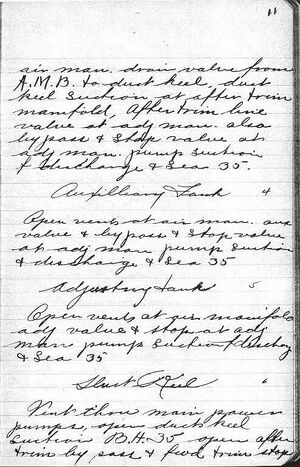 11
air man. drain valve from
A.M.B. to duct keel, duct
keel suction at after trim
manifold, After trim line
valve at adj man. also
by pass & stop valve at
adj man. pump suction
& discharge & Sea 35.
Auxilliary Tank 4
Open vents at air man. aux
valve & by pass & stop valve
at adj man pump suction
& discharge & Sea 35
Adjusting tank 5
Open vents at air manifold
adj valve & stop at adj
man pump suction & discharg
& Sea 35
Duct Keel 6
Vent thru main power
pumps, open duct keel
suction B.H. 35 open after
trim by pass & fwd trim stop